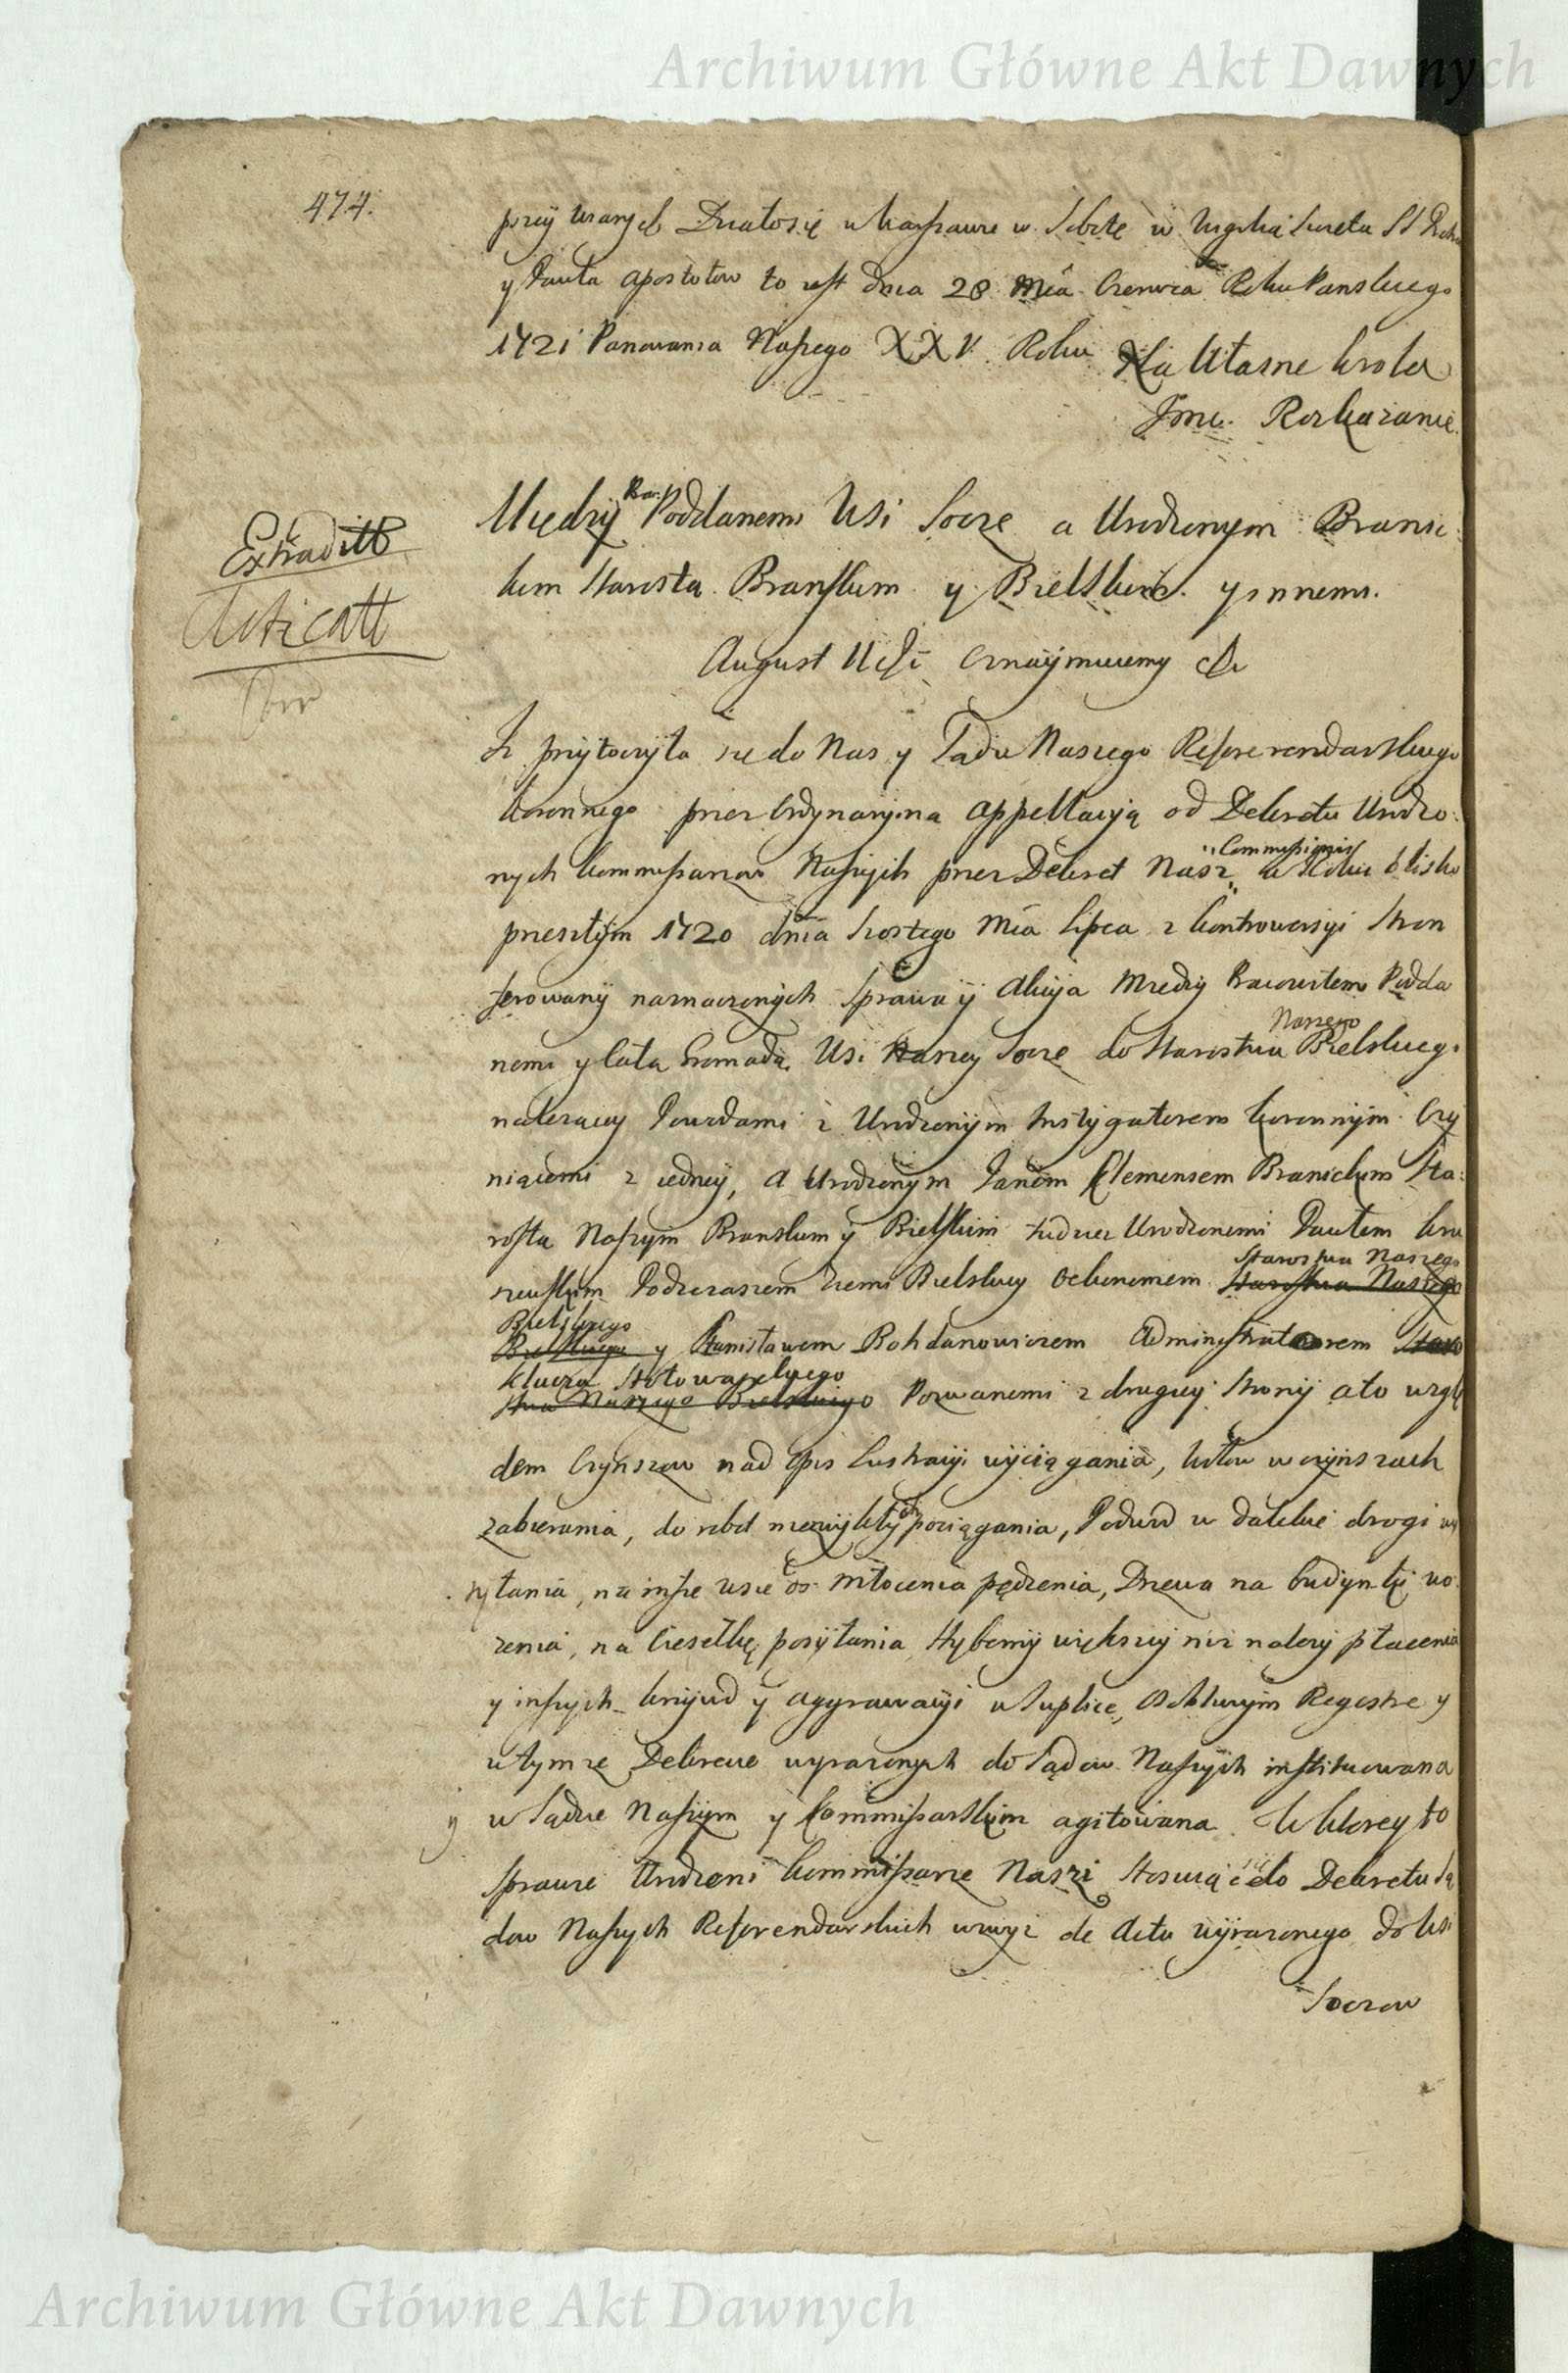 Archiwum Główne Akt Dawnych
474.
przy wanych Działosię w Warszawie w Sobotę w Wigilią Swięta SS Piotra
y Pawła Apostołow to iest dnia 28 Mca Czerwca Roku Panskiego
1721 Panowania Naszego XXV Roku Na Własne Krola
Jmci Rozkazanie.
Extraditt
Acticatt
Między Prac. Poddanemi Wsi Socze a Urodzonym Branic
kim Starostą Branskim y Bielskim y innemi.
August IIgi Oznaymuiemy &c
Iż przytoczyła sie do Nas y Sądu Naszego Referendarskiego
Koronnego przez Ordynaryina appellacyą od Dekretu Urodzo
nych Kommissarzow Naszych przez Dekret Nasz Commissionis w Roku blisko
przeszłym 1720 dnia szostego Mca Lipca z Kontrowersyi Stron
ferowany naznaczonych Sprawa y Akcya Między Pracowitemi Podda
nemi y całą Gromadą Wsi Naszey Socze do Starostwa Naszego Bielskiego
należącey Powodami z Urodzonym Instygatorem Koronnym Czy
niącemi z iedney, a Urodzonym Janem Klemensem Branickim Sta
rostą Naszym Branskim y Bielskim tudziez Urodzonemi Pawłem Kru
szewskim Podczaszem Ziemi Bielskiey Ockonomem Starostwa Naszego Starostwa Naszego
Bielskiego Bielskiego y Stanisławem Bohdanowiczem Administratorem Staro
Klucza Stołowaskiego stwa Naszego Bielskiego Pozwanemi z drugiey Strony ato wzglę
dem Czynszow nad Opis Lustracyi wyciągania, Wołow w czynszach
zabierania, do robot niezwykłych pociągania, Podwod w dalekie drogi wy
syłania, na insze wsie do Młocenia pędzenia, Drzewa na budynki wo
zenia, na Ciesiełkę posyłania, Hyberny większey niz nalezy płacenia
y inszych krzywd y aggrawacyi w Suplice, Osobliwym Regestrze y
w tymze Dekrecie wyrazonych do Sądow Naszych instituowana
y w Sądzie Naszym y Kommissarskim agitowana. W Ktorey to
Sprawie Urodzeni Kommissarze Naszi Stosuiąc sie do Dekretu Są
dow Naszych Referendarskich wwyz de Actu wyrazonego do Wsi
Soczow
Archiwum Główne Akt Dawnych